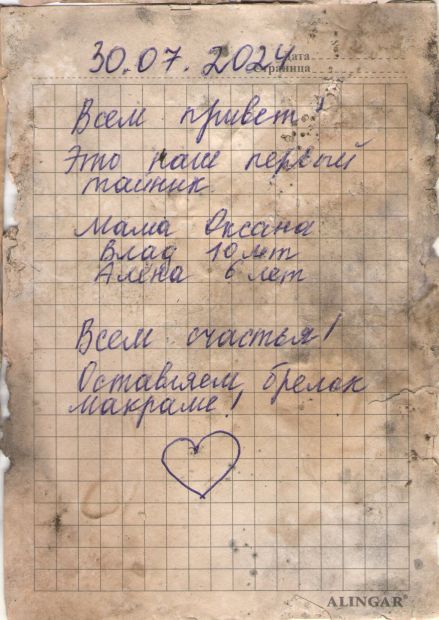 Дата
30.07.2024
Страница
Всем привет!
Это наш первый
тайник
Мама Оксана
Влад 10 лет
Алёна 6 лет
Всем счастья!
Оставляем брелок
макраме!
ALINGAR®